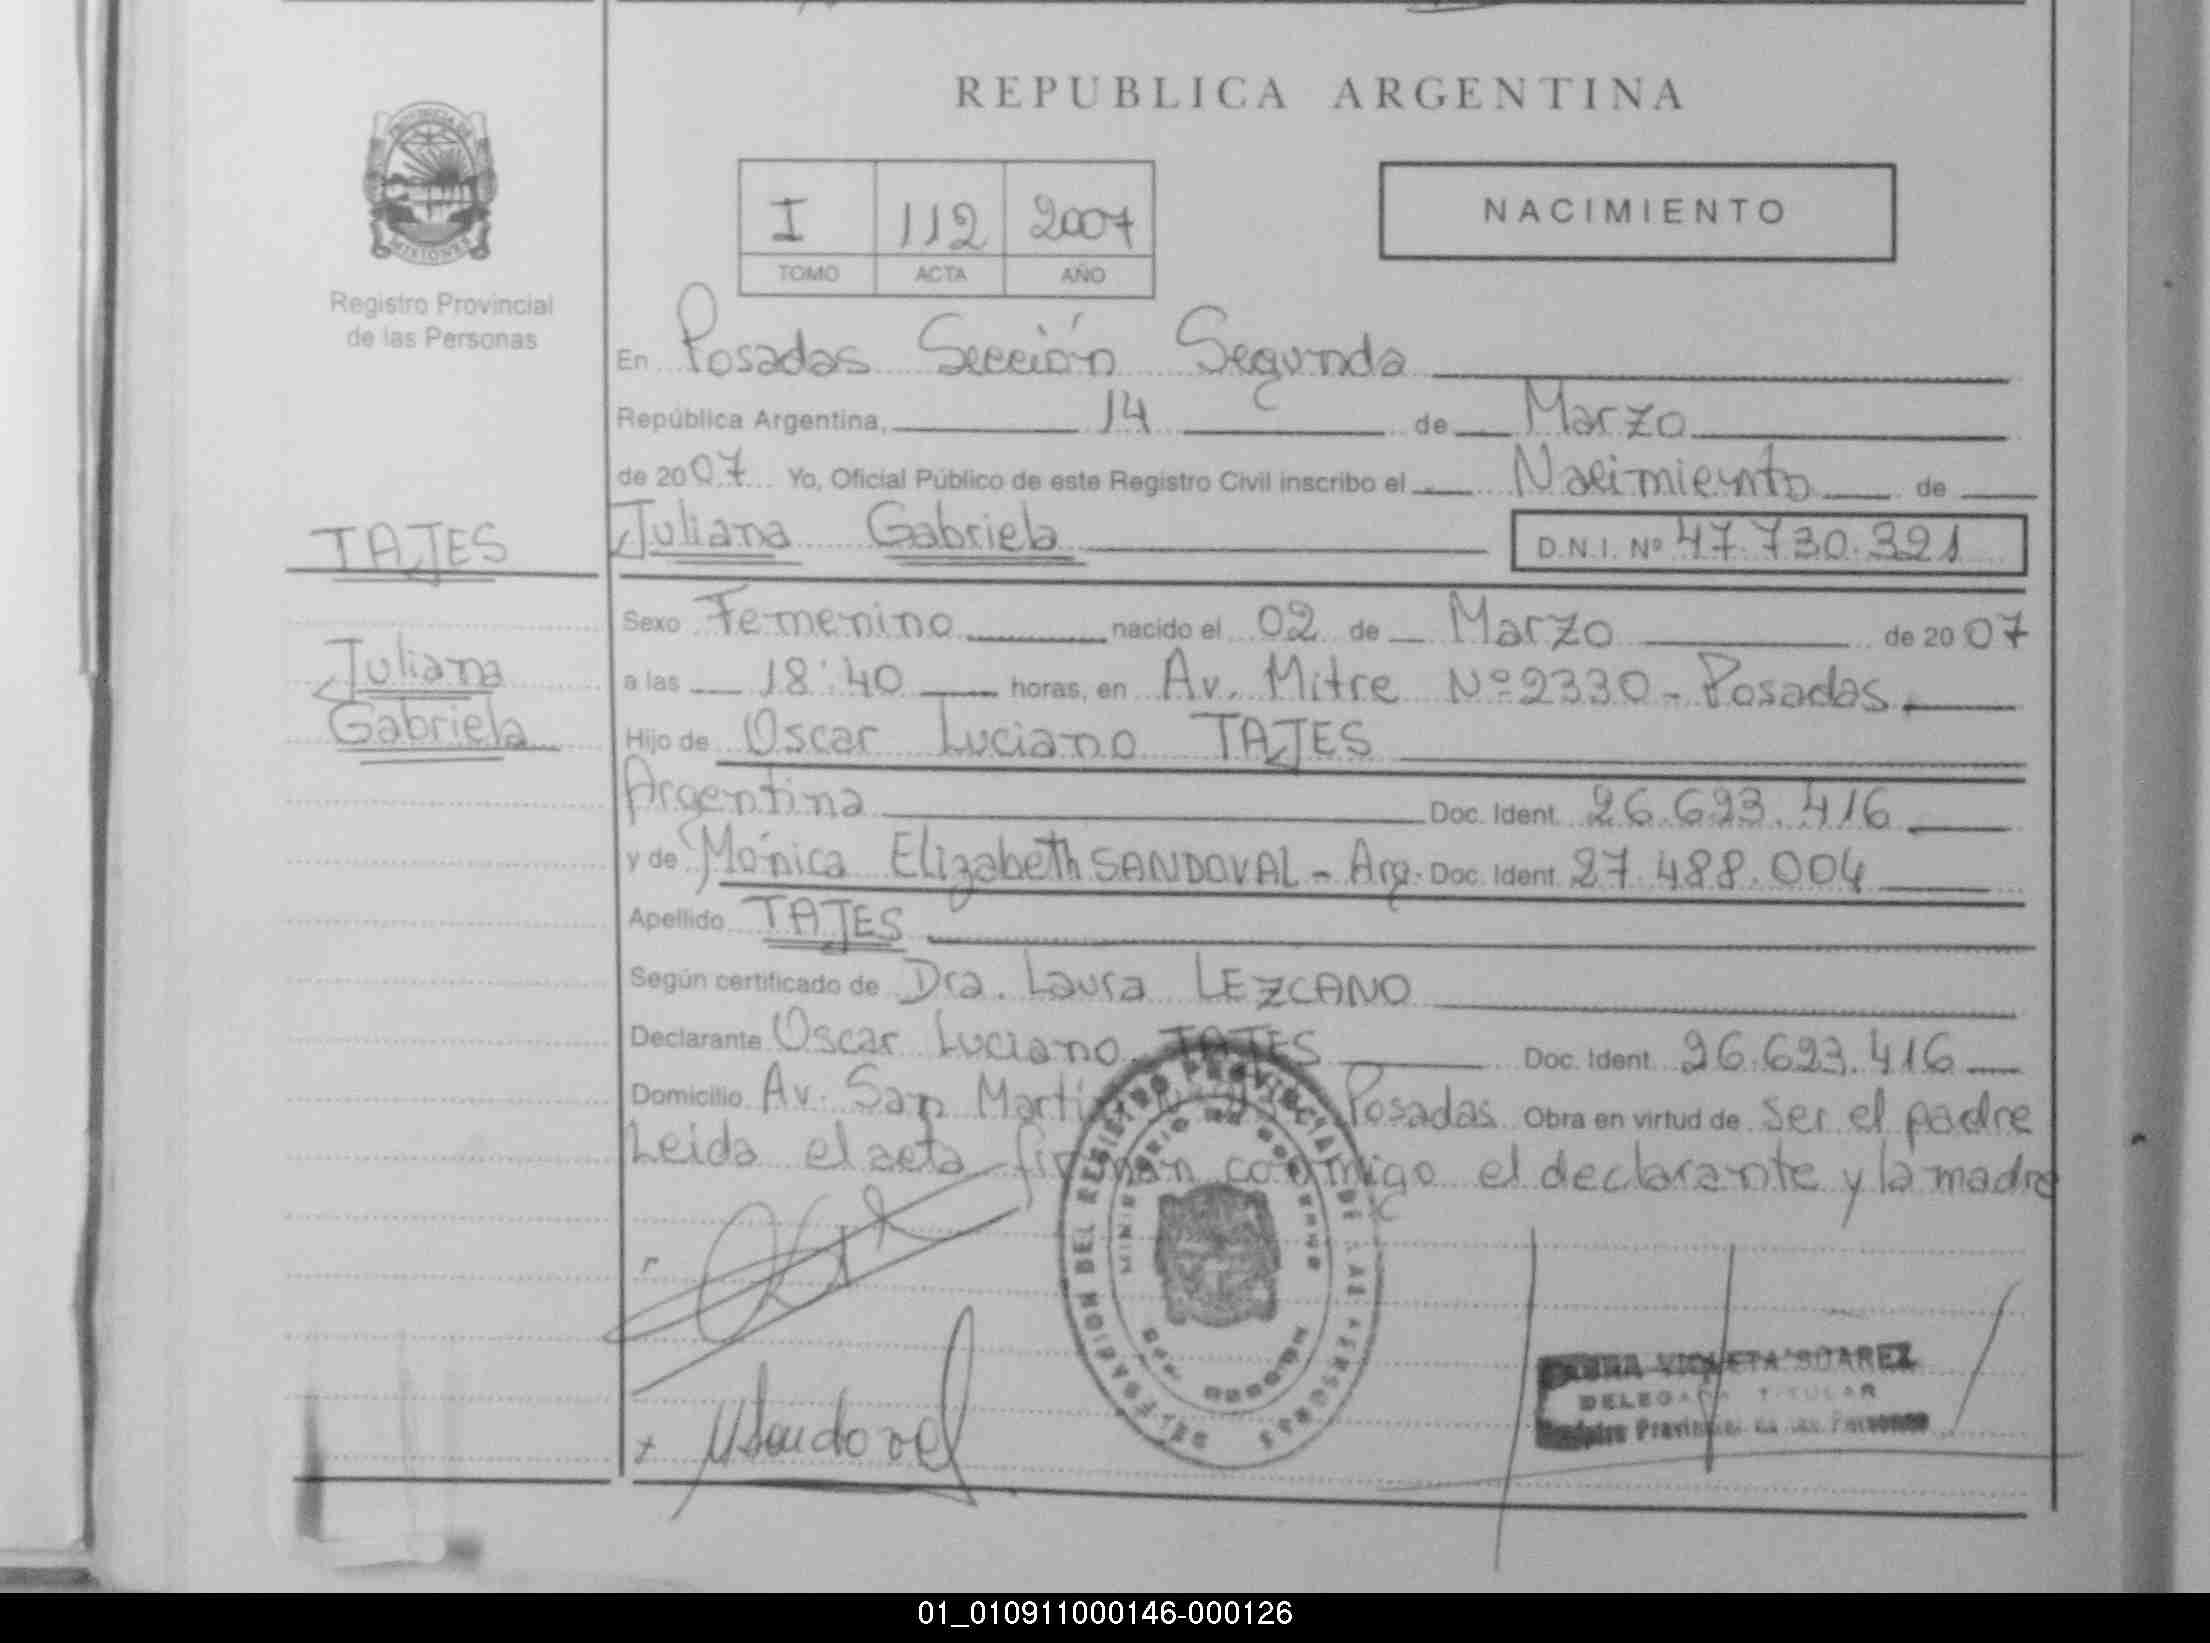 REPUBLICA ARGENTINA
PROVINCIA DE
MISIONES
Registro Provincial
de las Personas
I 112 2007
TOMO ACTA AÑO
NACIMIENTO
En Posadas Sección Segunda
República Argentina, 14 de Marzo
de 2007 Yo, Oficial Público de este Registro Civil inscribo el Nacimiento de
TAJES
Juliana Gabriela D.N.I. Nº 47.730.321
Sexo Femenino nacido el 02 de Marzo de 2007
Juliana
a las 18:40 horas, en Av. Mitre Nº 2330 - Posadas
Gabriela
Hijo de Oscar Luciano TAJES
Argentina Doc. Ident. 26.623.416
y de Mónica Elizabeth SANDOVAL - Arg. Doc. Ident. 27.488.004
Apellido TAJES
Según certificado de Dra. Laura LEZCANO
Declarante Oscar Luciano TAJES Doc. Ident. 26.623.416
Domicilio Av. San Martín Posadas Obra en virtud de ser el padre
Leida el acta firman conmigo el declarante y la madre
DELEGACION DEL REGISTRO PROVINCIAL DE LAS PERSONAS
MINISTERIO DE GOBIERNO
MISIONES
VIOLETA SUAREZ
DELEGADA TITULAR
Registro Provincial de las Personas
MSandoval
01_010911000146-000126